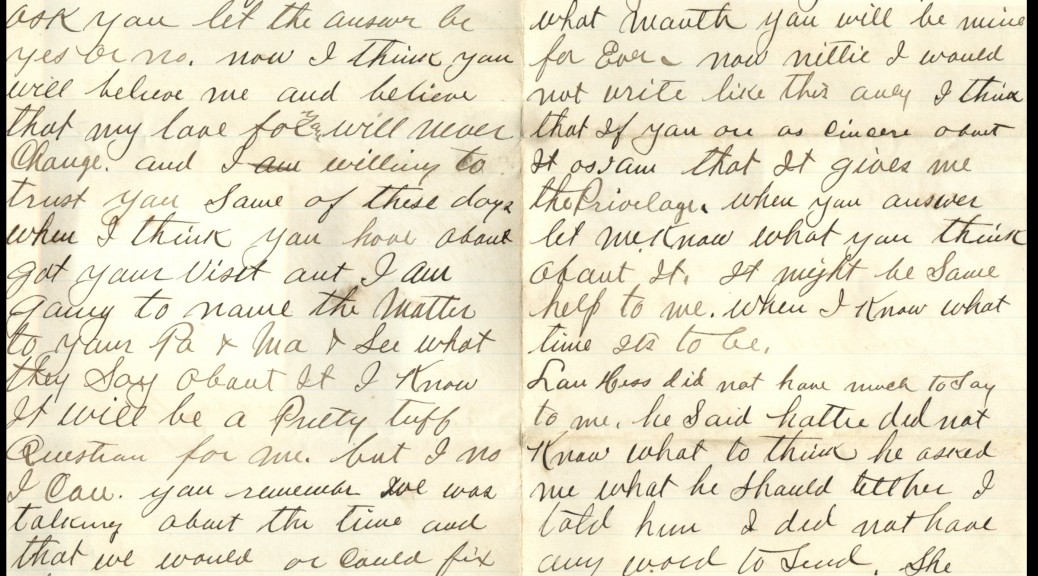 ask you let the answer be
yes or no. now I think you
will believe me and believe
that my love for you will never
Change. and I am willing to
trust you Some of these days
when I think you have about
got your Visit out I am
going to name the Matter
to your Pa & Ma & See what
they Say about It I Know
It will be a Pretty tuff
Question for me. but I no
I Can. you remember we was
talking about the time and
that we would or Could fix
what Month you will be mine
for Ever. now nittie I would
not write like this avey I think
that If you are as cincere about
It as I am that It gives me
the Privelage. when you answer
let me Know what you think
about It. It might be Some
help to me. when I Know what
time its to be.
Lau Hess did not have much to Say
to me. he Said hattie did not
Know what to think he asked
me what he should tell her I
told him I did not have
any word to Send. She